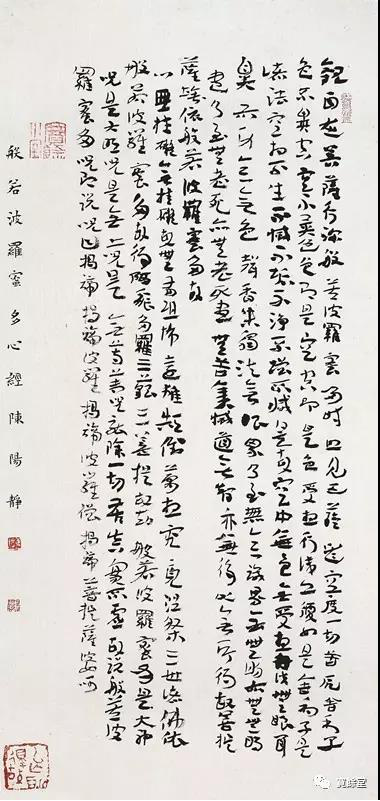 觀自在菩薩行深般若波羅蜜多時照見五蘊皆空度一切苦厄舍利子
色不異空空不異色色即是空空即是色受想行識亦復如是舍利子是
諸法空相不生不滅不垢不淨不增不減是故空中無色無受想行識無眼耳
鼻舌身意無色聲香味觸法無眼界乃至無意識界無無明亦無無明
盡乃至無老死亦無老死盡無苦集滅道無智亦無得以無所得故菩提
薩埵依般若波羅蜜多故
心無罣礙無罣礙故無有恐怖遠離顛倒夢想究竟涅槃三世諸佛依
般若波羅蜜多故得阿耨多羅三藐三菩提故知般若波羅蜜多是大神
呪是大明呪是無上呪是無等等呪能除一切苦真實不虛故說般若波
羅蜜多呪即說呪曰揭諦揭諦波羅揭諦波羅僧揭諦菩提薩婆訶
般若波羅蜜多心經陳陽靜